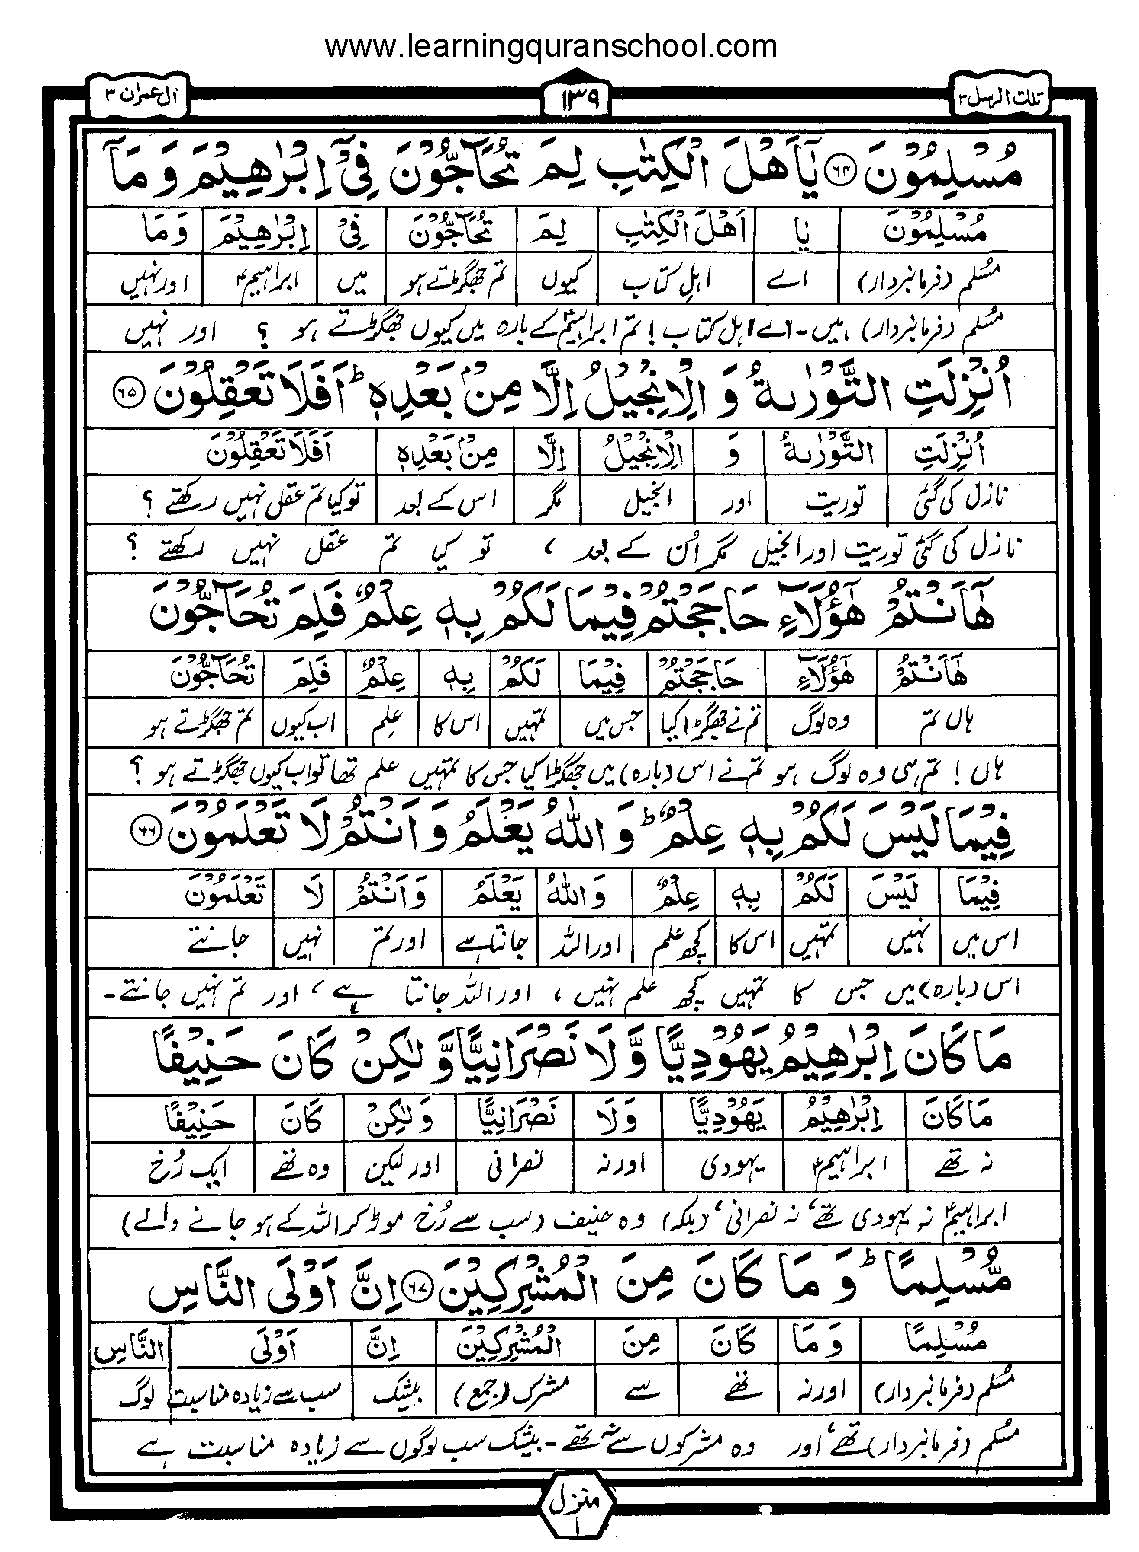 www.learningquranschool.com
تلك الرسل ۳ ۱۳۹ اٰل عمران ۳
مُسْلِمُوْنَ ﴿۶۴﴾ يٰۤاَهْلَ الْكِتٰبِ لِمَ تُحَآجُّوْنَ فِيْۤ اِبْرٰهِيْمَ وَمَاۤ
مُسْلِمُوْنَ يٰۤا اَهْلَ الْكِتٰبِ لِمَ تُحَآجُّوْنَ فِيْۤ اِبْرٰهِيْمَ وَمَاۤ
مُسلم (فرمانبردار) اے اہلِ کتاب کیوں تم جھگڑتے ہو میں ابراہیمؑ اور نہیں
مُسلم (فرمانبردار) ہیں۔ اے اہل کتاب! تم ابراہیمؑ کے بارہ میں کیوں جھگڑتے ہو ؟ اور نہیں
اُنْزِلَتِ التَّوْرٰىةُ وَ الْاِنْجِيْلُ اِلَّا مِنْۢ بَعْدِهٖ ؕ اَفَلَا تَعْقِلُوْنَ ﴿۶۵﴾
اُنْزِلَتِ التَّوْرٰىةُ وَ الْاِنْجِيْلُ اِلَّا مِنْۢ بَعْدِهٖ اَفَلَا تَعْقِلُوْنَ
نازل کی گئی توریت اور انجیل مگر اس کے بعد تو کیا تم عقل نہیں رکھتے ؟
نازل کی گئی توریت اور انجیل مگر اُن کے بعد ، تو کیا تم عقل نہیں رکھتے ؟
هٰۤاَنْتُمْ هٰۤؤُلَآءِ حَاجَجْتُمْ فِيْمَا لَكُمْ بِهٖ عِلْمٌ فَلِمَ تُحَآجُّوْنَ
هٰۤاَنْتُمْ هٰۤؤُلَآءِ حَاجَجْتُمْ فِيْمَا لَكُمْ بِهٖ عِلْمٌ فَلِمَ تُحَآجُّوْنَ
ہاں تم وہ لوگ تم نے جھگڑا کیا جس میں تمہیں اس کا علم اب کیوں تم جھگڑتے ہو
ہاں! تم ہی وہ لوگ ہو تم نے اس (بارہ) میں جھگڑا کیا جس کا تمہیں علم تھا تو اب کیوں جھگڑتے ہو ؟
فِيْمَا لَيْسَ لَكُمْ بِهٖ عِلْمٌ ؕ وَاللّٰهُ يَعْلَمُ وَاَنْتُمْ لَا تَعْلَمُوْنَ ﴿۶۶﴾
فِيْمَا لَيْسَ لَكُمْ بِهٖ عِلْمٌ وَاللّٰهُ يَعْلَمُ وَاَنْتُمْ لَا تَعْلَمُوْنَ
اس میں نہیں تمہیں اس کا کچھ علم اور اللہ جانتا ہے اور تم نہیں جانتے
اس (بارہ) میں جس کا تمہیں کچھ علم نہیں ، اور اللہ جانتا ہے ، اور تم نہیں جانتے۔
مَا كَانَ اِبْرٰهِيْمُ يَهُوْدِيًّا وَّلَا نَصْرَانِيًّا وَّلٰكِنْ كَانَ حَنِيْفًا
مَا كَانَ اِبْرٰهِيْمُ يَهُوْدِيًّا وَلَا نَصْرَانِيًّا وَلٰكِنْ كَانَ حَنِيْفًا
نہ تھے ابراہیمؑ یہودی اور نہ نصرانی اور لیکن وہ تھے ایک رُخ
ابراہیمؑ نہ یہودی تھے، نہ نصرانی، (بلکہ) وہ حنیف (سب سے رُخ موڑ کر اللہ کے ہو جانے والے)
مُّسْلِمًا ؕ وَ مَا كَانَ مِنَ الْمُشْرِكِيْنَ ﴿۶۷﴾ اِنَّ اَوْلَى النَّاسِ
مُسْلِمًا وَمَا كَانَ مِنَ الْمُشْرِكِيْنَ اِنَّ اَوْلَى النَّاسِ
مُسلم (فرمانبردار) اور نہ تھے سے مشرک (جمع) بیشک سب سے زیادہ مناسبت لوگ
مُسلم (فرمانبردار) تھے، اور وہ مشرکوں سے نہ تھے۔ بیشک سب لوگوں سے زیادہ مناسبت ہے
منزل ۱